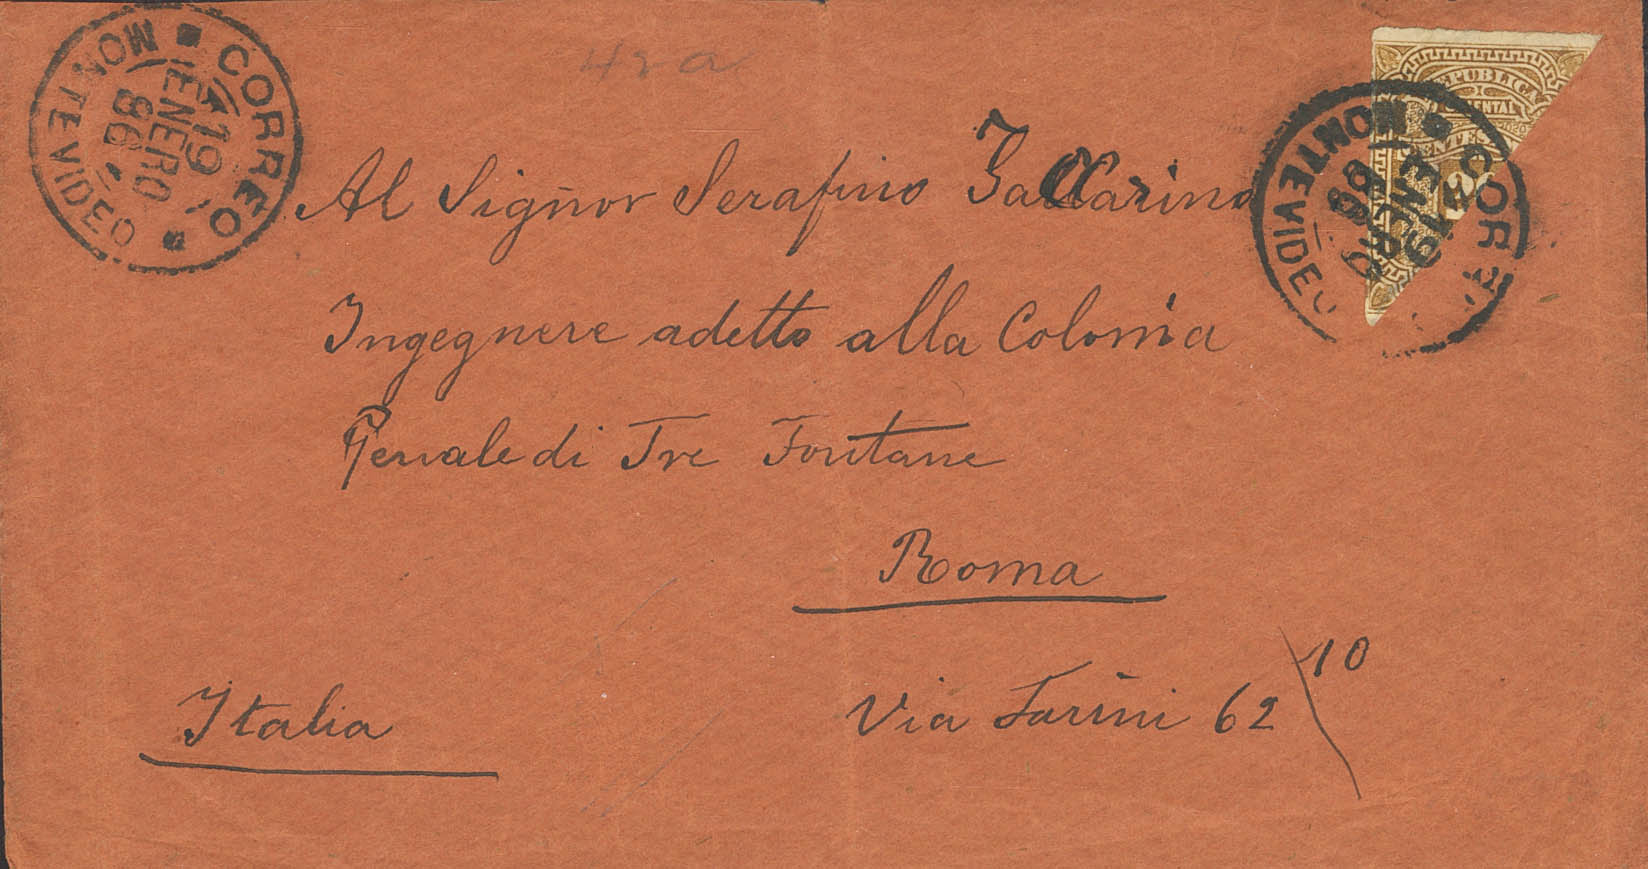 CORREO
19
ENERO
86
MONTEVIDEO
42a
REPUBLICA
ORIENTAL
CORREO
19
ENERO
86
MONTEVIDEO
Al Signor Serafino
Ingegnere adetto alla Colonia
Penale di Tre Fontane
Roma
10
Italia
Via Farini 62